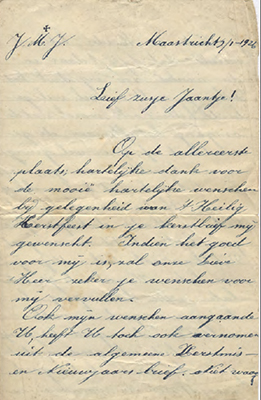 J. M. J. Maastricht 7/1-1926
Lief zusje Jaantje!
Op de allereerste
plaats, hartelijke dank voor
de mooië hartelijke wenschen
bij gelegenheid van 't Heilig
Kerstfeest in je kerstbrief mij
gewenscht. Indien het goed
voor mij is, zal onze lieve
Heer zeker je wenschen voor
mij vervullen.
Ook mijn wenschen aangaande
U, heeft U toch ook vernomen
uit de algemeene Kerstmis-
en Nieuwjaarsbrief. Niet waar